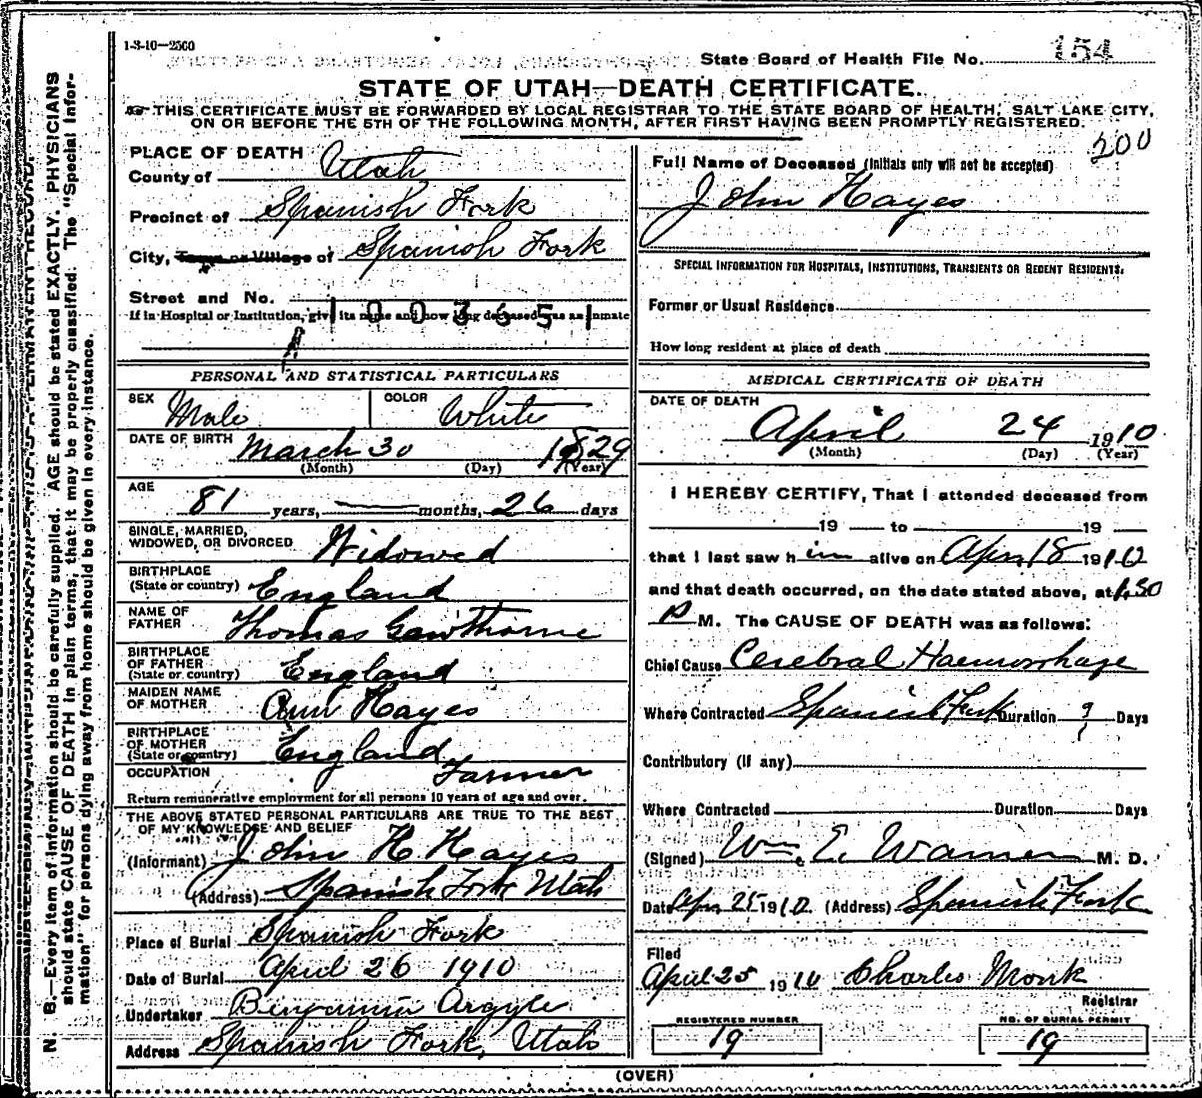 1-3-10—2500
State Board of Health File No. 154
STATE OF UTAH—DEATH CERTIFICATE.
THIS CERTIFICATE MUST BE FORWARDED BY LOCAL REGISTRAR TO THE STATE BOARD OF HEALTH, SALT LAKE CITY,
ON OR BEFORE THE 5TH OF THE FOLLOWING MONTH, AFTER FIRST HAVING BEEN PROMPTLY REGISTERED.
200
N. B.—Every item of information should be carefully supplied. AGE should be stated EXACTLY. PHYSICIANS
should state CAUSE OF DEATH in plain terms, that it may be properly classified. The "Special Infor-
mation" for persons dying away from home should be given in every instance.
PLACE OF DEATH
County of Utah
Precinct of Spanish Fork
City, Town or Village of Spanish Fork
Street and No.
1003651
If in Hospital or Institution, give its name and how long deceased was an inmate
PERSONAL AND STATISTICAL PARTICULARS
SEX Male COLOR White
DATE OF BIRTH March 30 1829
(Month) (Day) (Year)
AGE
81 years, — months, 26 days
SINGLE, MARRIED,
WIDOWED, OR DIVORCED Widowed
BIRTHPLACE
(State or country) England
NAME OF
FATHER Thomas Gawthorne
BIRTHPLACE
OF FATHER
(State or country) England
MAIDEN NAME
OF MOTHER Ann Hayes
BIRTHPLACE
OF MOTHER
(State or country) England
OCCUPATION Farmer
Return remunerative employment for all persons 10 years of age and over.
THE ABOVE STATED PERSONAL PARTICULARS ARE TRUE TO THE BEST
OF MY KNOWLEDGE AND BELIEF
(Informant) John H Hayes
(Address) Spanish Fork Utah
Place of Burial Spanish Fork
Date of Burial April 26 1910
Undertaker Benjamin Argyle
Address Spanish Fork, Utah
Full Name of Deceased (Initials only will not be accepted)
John Hayes
SPECIAL INFORMATION FOR HOSPITALS, INSTITUTIONS, TRANSIENTS OR RECENT RESIDENTS.
Former or Usual Residence
How long resident at place of death
MEDICAL CERTIFICATE OF DEATH
DATE OF DEATH
April 24 1910
(Month) (Day) (Year)
I HEREBY CERTIFY, That I attended deceased from
19 to 19
that I last saw him alive on Apr. 18 1910
and that death occurred, on the date stated above, at 1.30
P M. The CAUSE OF DEATH was as follows:
Chief Cause Cerebral Haemorrhage
Where Contracted Spanish Fork Duration ? Days
Contributory (if any)
Where Contracted Duration Days
(Signed) Wm. E. Warner M. D.
Date Apr 25 1910 (Address) Spanish Fork
Filed
April 25 1910 Charles Monk
Registrar
REGISTERED NUMBER NO. OF BURIAL PERMIT
19 19
(OVER)